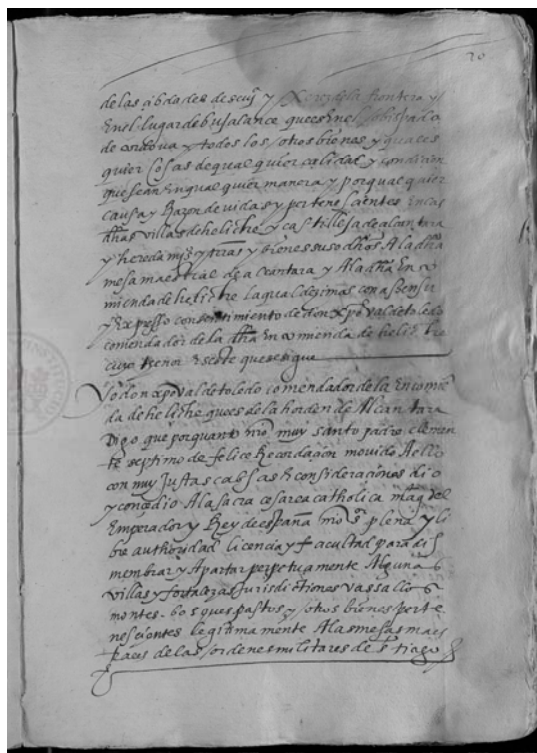 20
de las çibdades de seuj y Xerez de la frontera y
En el lugar de bujalance que es En el obispado
de cordova y todos los otros bienes y quales
quier cosas de qual quier calidad y condicion
que sean En qual quier manera y por qual quier
causa y Razon devidas y pertenescientes En las
dhas villas de heliche y castilleja de alcantara
y heredamis y trras y bienes suso dhos A la dha
mesa maestral de alcantara y A la dha En co
mienda de heliche la qual dezimas con asensu
y Expresso consentimiento de don xpoval de toledo
comendador de la dha En comienda de heliche
cuyo tenor Es este que se sigue
Yo don xpoval de toledo comendador de la Encomie
da de heliche que es de la horden de Alcantara
Digo que por quanto nro muy santo padre clemen
te septimo de felice Recordaçion movido A ello
con muy Justas cabsas & consideraciones dio
y concedio A la sacra cesarea catholica mag del
Emperador y Rey de españa nro sr plena y li
bre authoridad licencia y facultad para dis
membrar y Apartar perpetuamente Algunas
villas y fortalezas Jurisdictiones vassallos
montes. bosques pastos y otros bienes perte
nescientes legitimamente A las mesas maes
trales de las ordenes militares de stiago